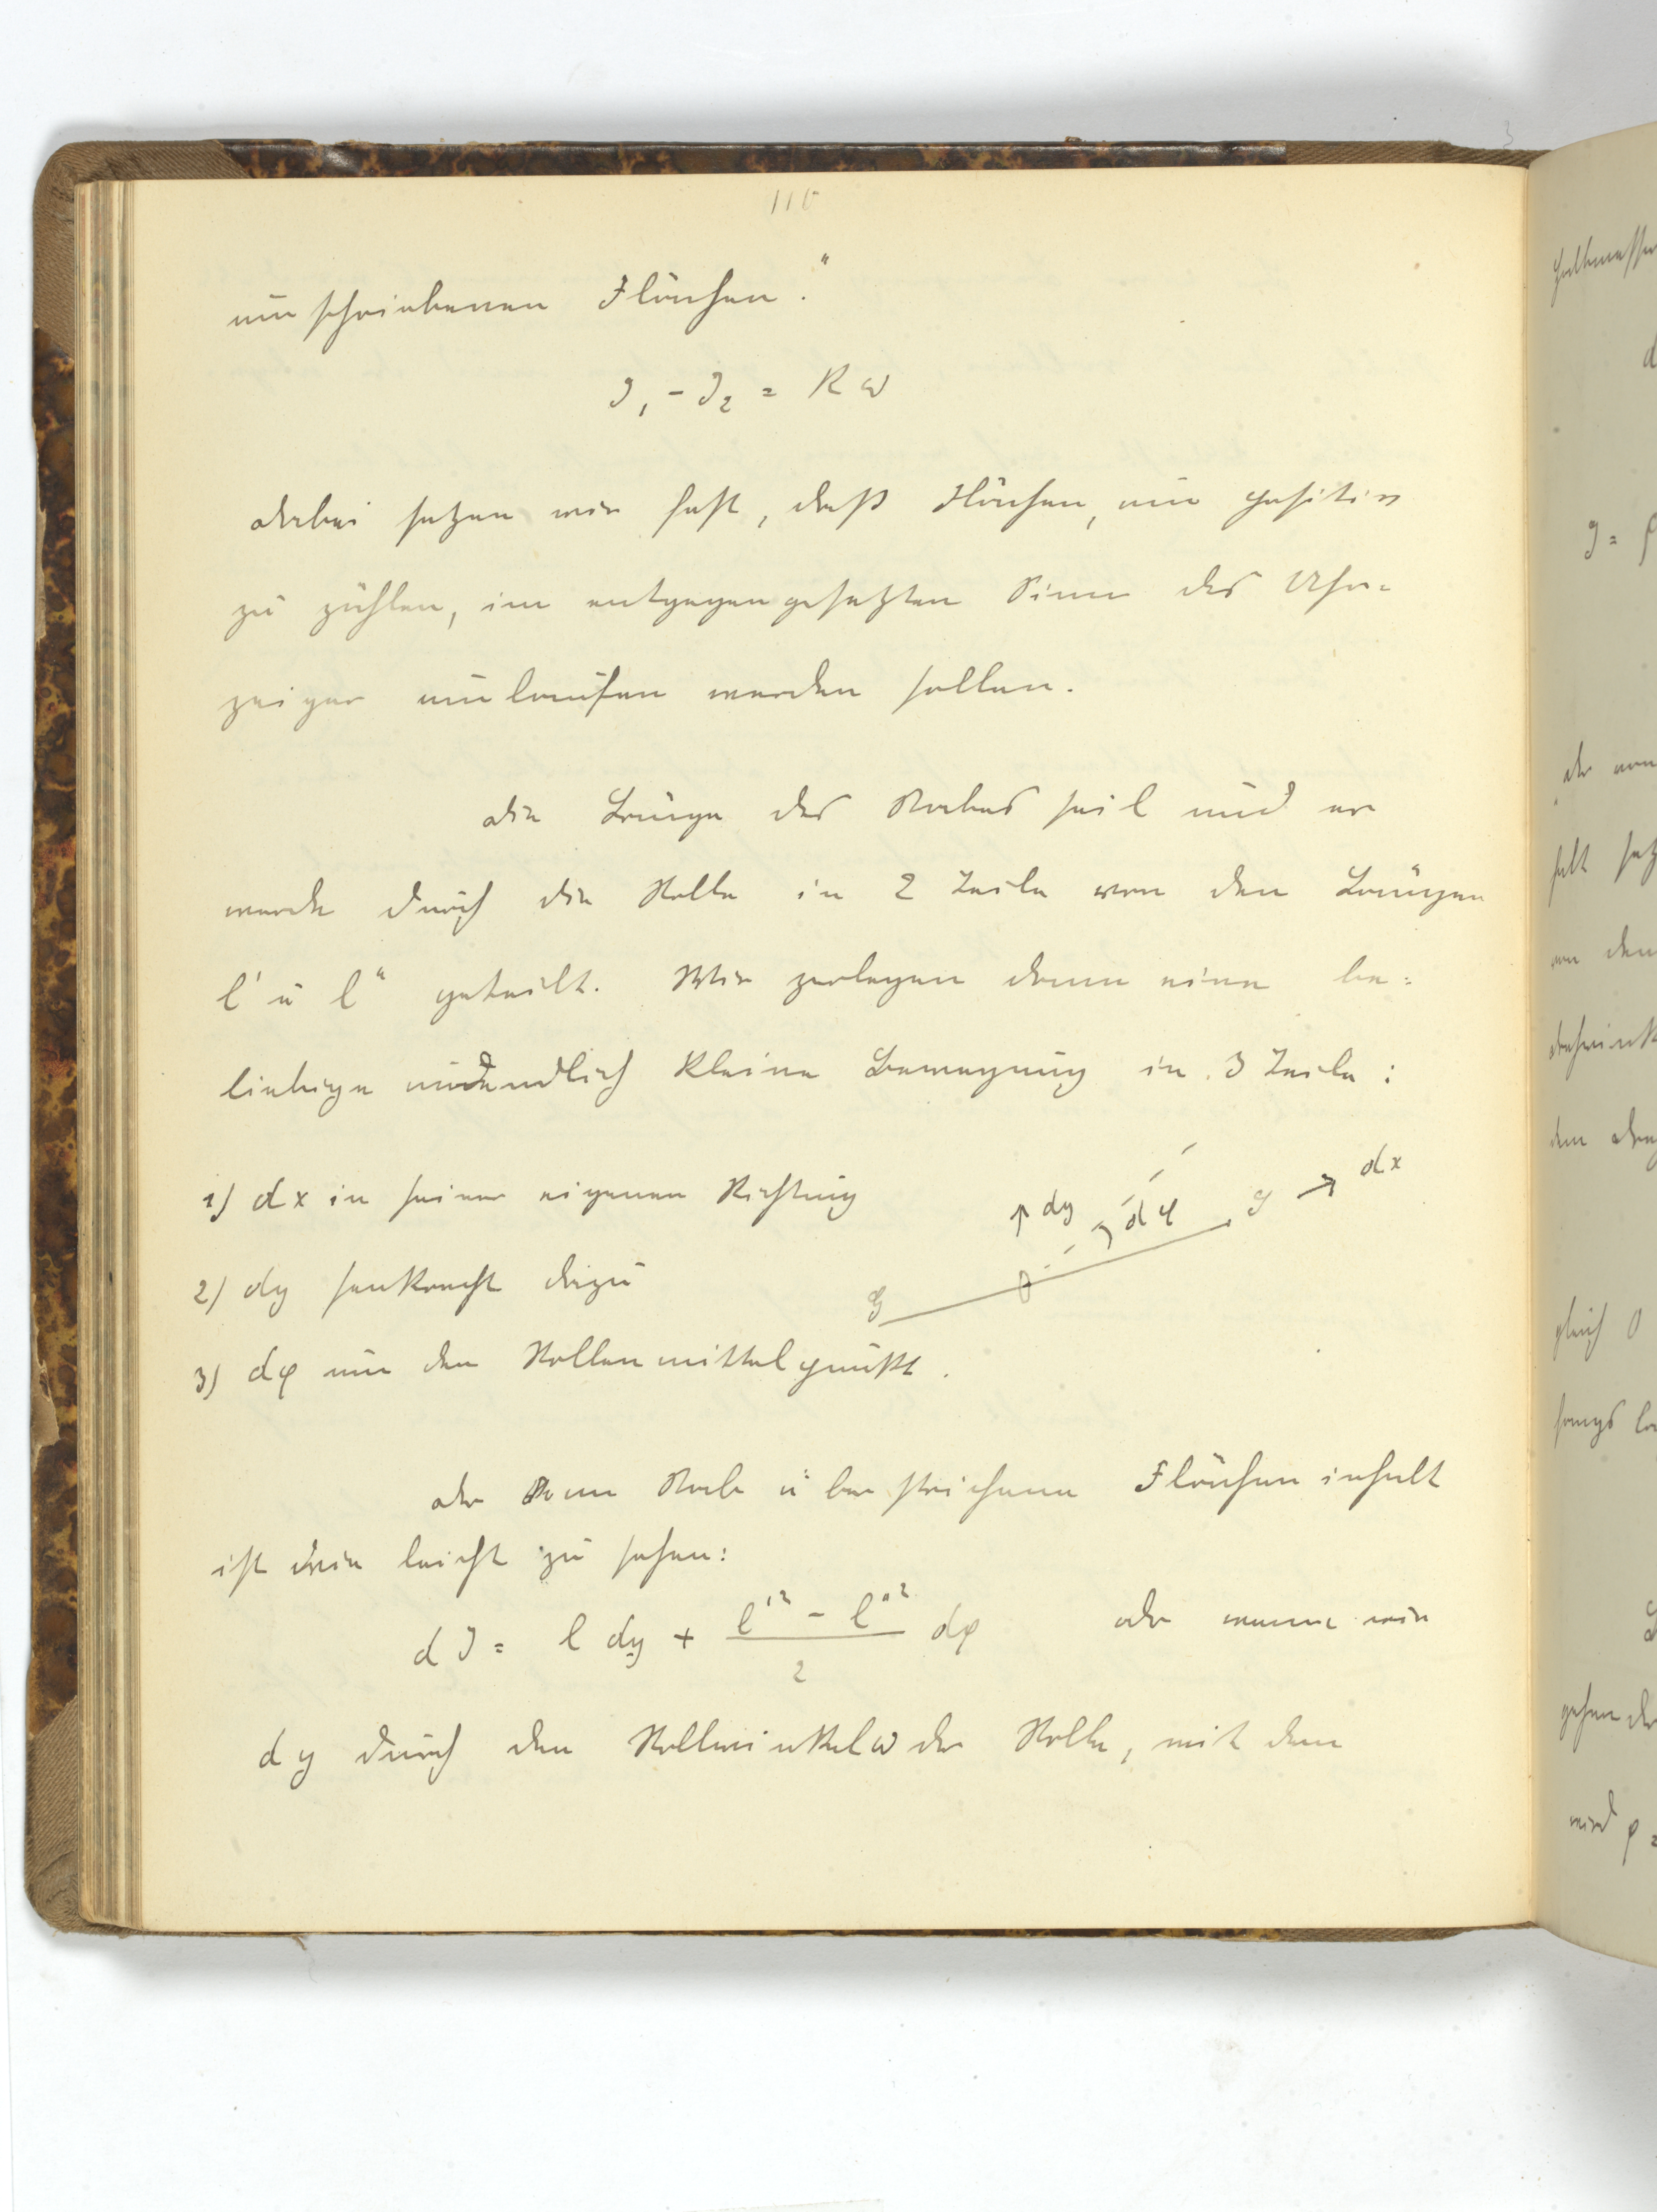 110
umschriebenen Flächen."
J₁ - J₂ = R ω
Dabei setzen wir fest, daß Flächen, um positiv
zu zählen, im entgegengesetzten Sinn des Uhr=
zeiger umlaufen werden sollen.
Die Länge des Stabes sei l und er
werde durch die Rolle in 2 Teile von den Längen
l' u l" geteilt. Wir zerlegen dann eine be=
liebige unendlich kleine Bewegung in 3 Teile:
1) dx in seiner eigenen Richtung
dy dφ dx
2) dy senkrecht dazu
3) dφ um den Rollenmittelpunkt.
Der vom Stab überstrichene Flächeninhalt
ist wie leicht zu sehen:
dJ = l dy + (l'² - l"²)/2 dφ oder wenn wir
dy durch den Rollwinkel ω der Rolle, mit dem